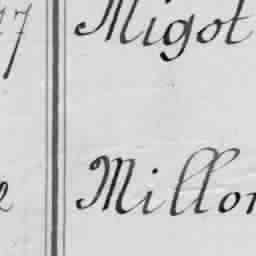 77 Migot
e Millon